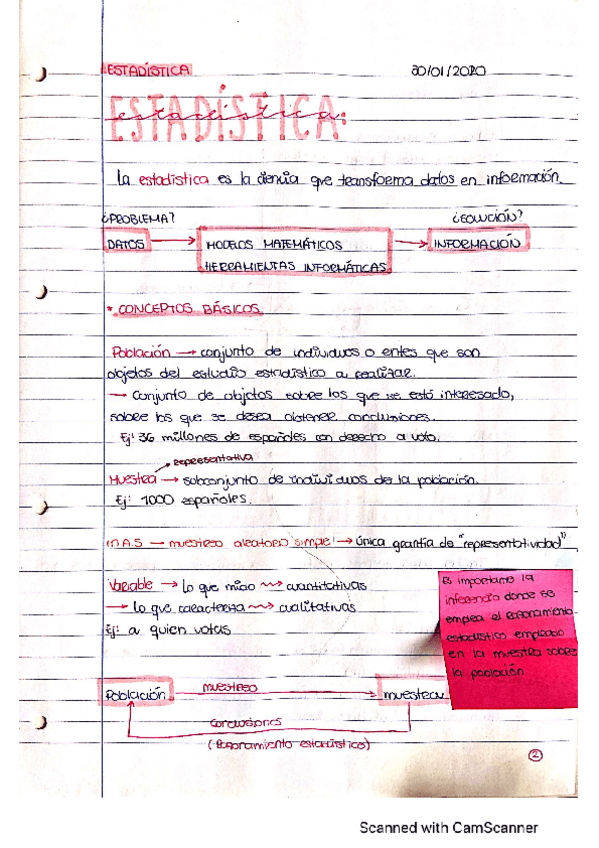 ESTADÍSTICA 20/01/2020
ESTADÍSTICA:
estadística
La estadística es la ciencia que transforma datos en información.
¿PROBLEMA? ¿SOLUCIÓN?
DATOS → MODELOS MATEMÁTICOS → INFORMACIÓN
HERRAMIENTAS INFORMÁTICAS
* CONCEPTOS BÁSICOS.
Población → conjunto de individuos o entes que son
objetos del estudio estadístico a realizar.
→ Conjunto de objetos sobre los que se está interesado,
sobre los que se desea obtener conclusiones.
Ej: 36 millones de españoles con derecho a voto.
representativa
Muestra → subconjunto de individuos de la población.
Ej: 1000 españoles.
M.A.S → muestreo aleatorio simple → única garantía de "representatividad"
Variable → lo que mido → cuantitativas
→ lo que caracteriza → cualitativas
Ej: a quien votas
Es importante la
inferencia donde se
emplea el razonamiento
estadístico empleado
en la muestra sobre
la población
Población muestreo → muestra
Conclusiones
(Razonamiento estadístico)
2
Scanned with CamScanner